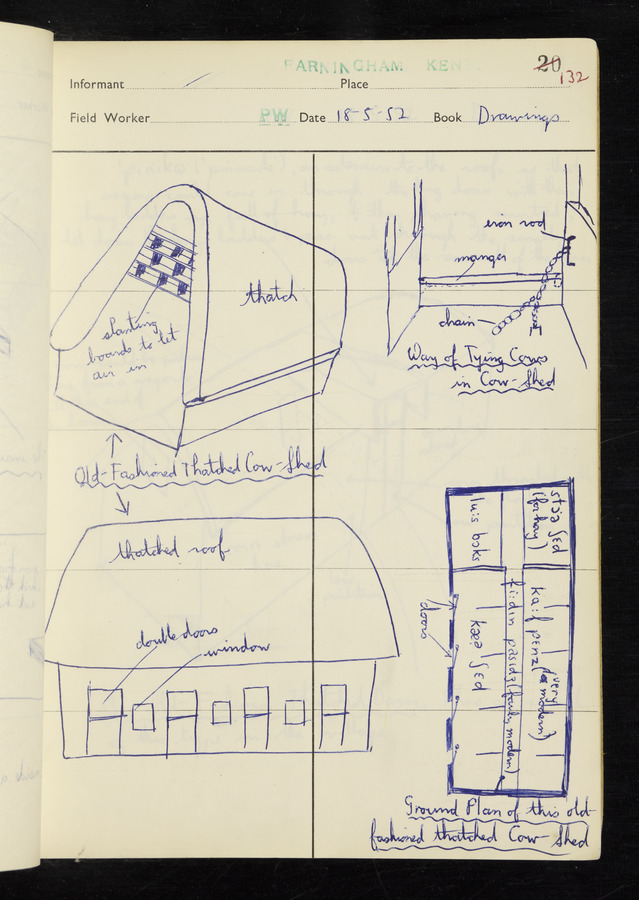 FARNINGHAM KENT
20
132
Informant
Place
Field Worker PW Date 18-5-52 Book Drawings
thatch
slanting
boards to let
air in
Old-Fashioned Thatched Cow-Shed
iron rod
manger
chain
Way of Tying Cows
in Cow-Shed
thatched roof
double doors
window
lu:s bɒks
(for hay)
doors
ka:f penz
(very
modern)
(fairly modern)
Ground Plan of this old-
fashioned thatched Cow-Shed